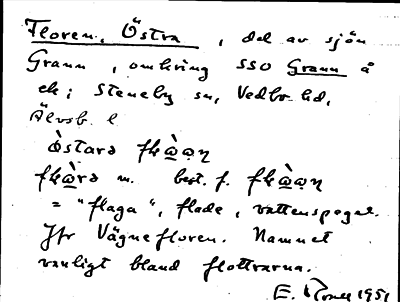 Floren, Östra, del av sjön
Grann, omkring SSO Grann å
ek; Steneby sn, Vedbo hd,
Älvsb. l
òstarə
m. best. f.
= "flaga", flade, vattenspegel.
Jfr Vägnefloren. Namnet
vanligt bland flottarna.
E. 1951